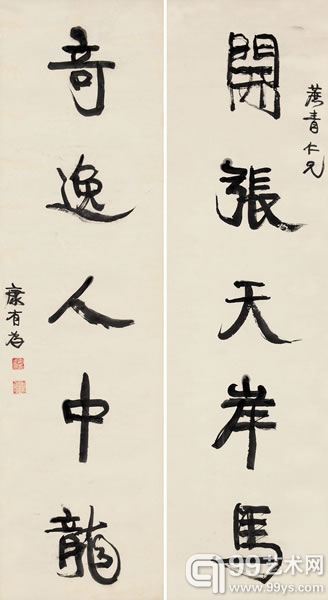 青仁兄
開張天岸馬
奇逸人中龍
康有為
99艺术网
www.99ys.com